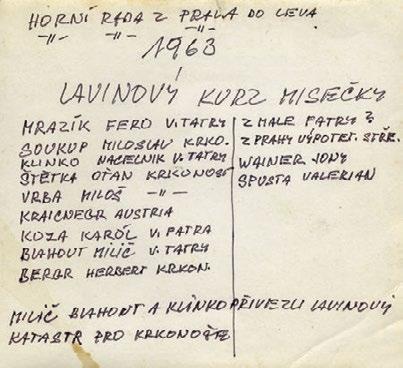 HORNÍ ŘADA Z PRALA DO LEVA
-"- -"- -"-
1963
LAVINOVÝ KURZ MISEČKY
MRAZÍK FERO V. TATRY
SOUKUP MILOSLAV KRKO.
KLINKO NACELNIK V. TATRY
ŠTĚTKA OŤAN KRKONOŠE
VRBA MILOŠ -"-
KRAICNEGR AUSTRIA
KOZA KARÓL V. FATRA
BLAHOUT MILIČ V. TATRY
BERGR HERBERT KRKON.
Z MALE FATRY ?
Z PRAHY VÝPOTET. STŘE.
WAINER JONY
SPUSTA VALERIAN
MILIČ BLAHOUT A KLINKO PŘIVEZLI LAVINOVÝ
KATASTR PRO KRKONOŠE